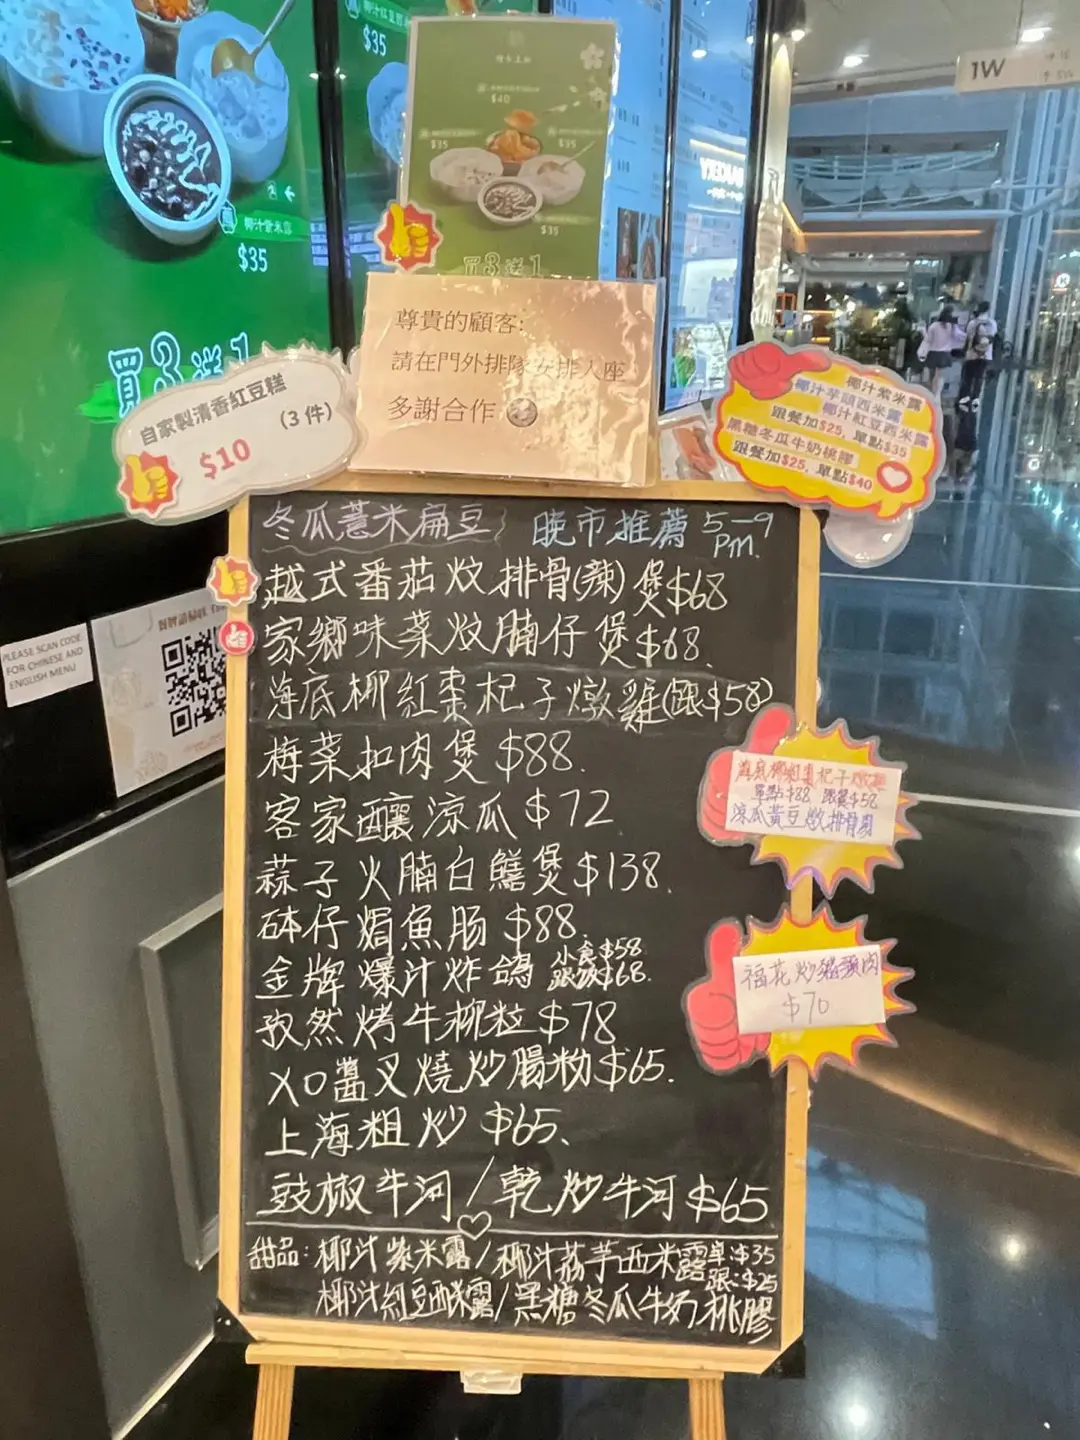 $35
椰汁紫米露
$35
買3送1
$40
$35
$35
$35
買3送1
1W
尊貴的顧客:
請在門外排隊安排入座
多謝合作
自家製清香紅豆糕
(3 件)
$10
椰汁紫米露
椰汁芋頭西米露
椰汁紅豆西米露
跟餐加$25, 單點$35
黑糖冬瓜牛奶桃膠
跟餐加$25, 單點$40
PLEASE SCAN CODE
FOR CHINESE AND
ENGLISH MENU
冬瓜薏米扁豆 晚市推薦 5—9 pm.
越式番茄炆排骨(辣)煲$68
家鄉味菜炆腩仔煲$68.
海底椰紅棗杞子燉雞(跟$58)
梅菜扣肉煲 $88.
客家釀涼瓜 $72
蒜子火腩白鱔煲$138.
砵仔焗魚肠 $88.
金牌爆汁炸鴿 小食$58
跟飯$68.
孜然烤牛柳粒$78
XO醬叉燒炒腸粉$65.
上海粗炒 $65.
豉椒牛河/乾炒牛河 $65
甜品: 椰汁紫米露/椰汁荔芋西米露 單:$35
跟:$25
椰汁紅豆西米露/黑糖冬瓜牛奶桃膠
海底椰紅棗杞子燉雞
單點$88 跟餐$58
涼瓜黃豆燉排骨湯
福花炒豬頸肉
$70